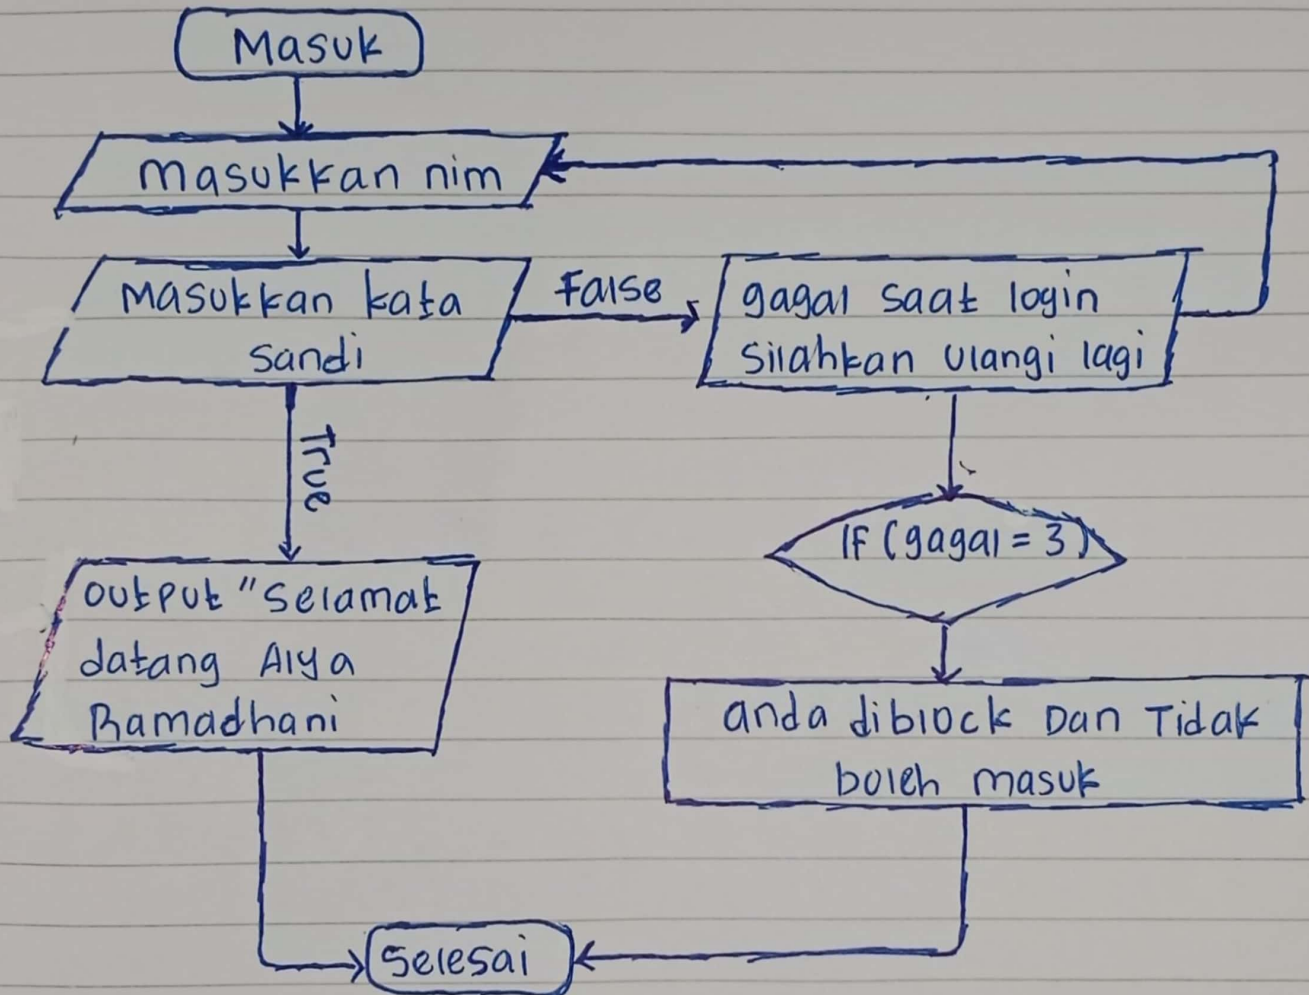 Masuk
masukkan nim
masukkan kata
sandi
False
gagal saat login
silahkan ulangi lagi
True
IF (gagal = 3)
output "Selamat
datang Alya
Ramadhani
anda diblock Dan Tidak
boleh masuk
Selesai